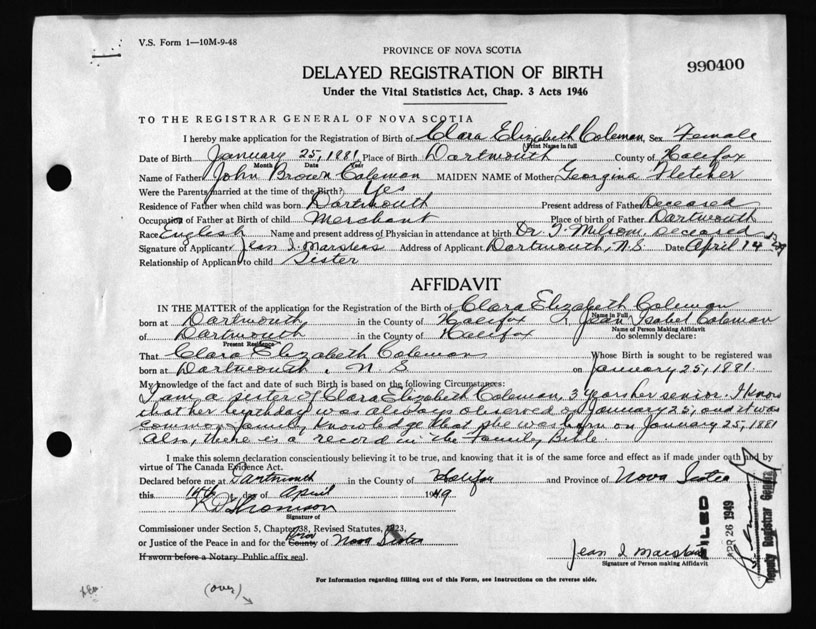 V.S. Form 1—10M-9-48
PROVINCE OF NOVA SCOTIA
990400
DELAYED REGISTRATION OF BIRTH
Under the Vital Statistics Act, Chap. 3 Acts 1946
TO THE REGISTRAR GENERAL OF NOVA SCOTIA
I hereby make application for the Registration of Birth of Clara Elizabeth Coleman, Sex Female
Print Name in full
Date of Birth January 25, 1881 Place of Birth Dartmouth County of Halifax
Month Date Year
Name of Father John Brown Coleman MAIDEN NAME of Mother Georgina Fletcher
Were the Parents married at the time of the Birth? Yes
Residence of Father when child was born Dartmouth Present address of Father Deceased
Occupation of Father at Birth of child Merchant Place of birth of Father Dartmouth
Race English Name and present address of Physician in attendance at birth Dr. T. Milsom, Deceased
Signature of Applicant Jean I. Address of Applicant Dartmouth, N.S. Date April 14
Relationship of Applicant to child Sister
AFFIDAVIT
IN THE MATTER of the application for the Registration of the Birth of Clara Elizabeth Coleman
Name in Full
born at Dartmouth in the County of Halifax I, Jean Isabel Coleman
Name of Person Making Affidavit
of Dartmouth in the County of Halifax do solemnly declare:
Present Residence
That Clara Elizabeth Coleman Whose Birth is sought to be registered was
born at Dartmouth, N S on January 25, 1881.
My knowledge of the fact and date of such Birth is based on the following Circumstances:
I am a sister of Clara Elizabeth Coleman, 3 years her senior. I know
that her birthday was always observed on January 25, and it was
common family knowledge that she was born on January 25, 1881
Also, there is a record in the Family Bible.
I make this solemn declaration conscientiously believing it to be true, and knowing that it is of the same force and effect as if made under oath and by
virtue of The Canada Evidence Act.
Declared before me at Dartmouth in the County of Halifax and Province of Nova Scotia
this 14th day of April 1949
Signature of
Commissioner under Section 5, Chapter 38, Revised Statutes, 1923,
or Justice of the Peace in and for the County of Nova Scotia
If sworn before a Notary Public affix seal.
Jean I.
Signature of Person making Affidavit
FILED
APR 26 1949
Deputy Registrar General
For Information regarding filling out of this Form, see Instructions on the reverse side.
(over)